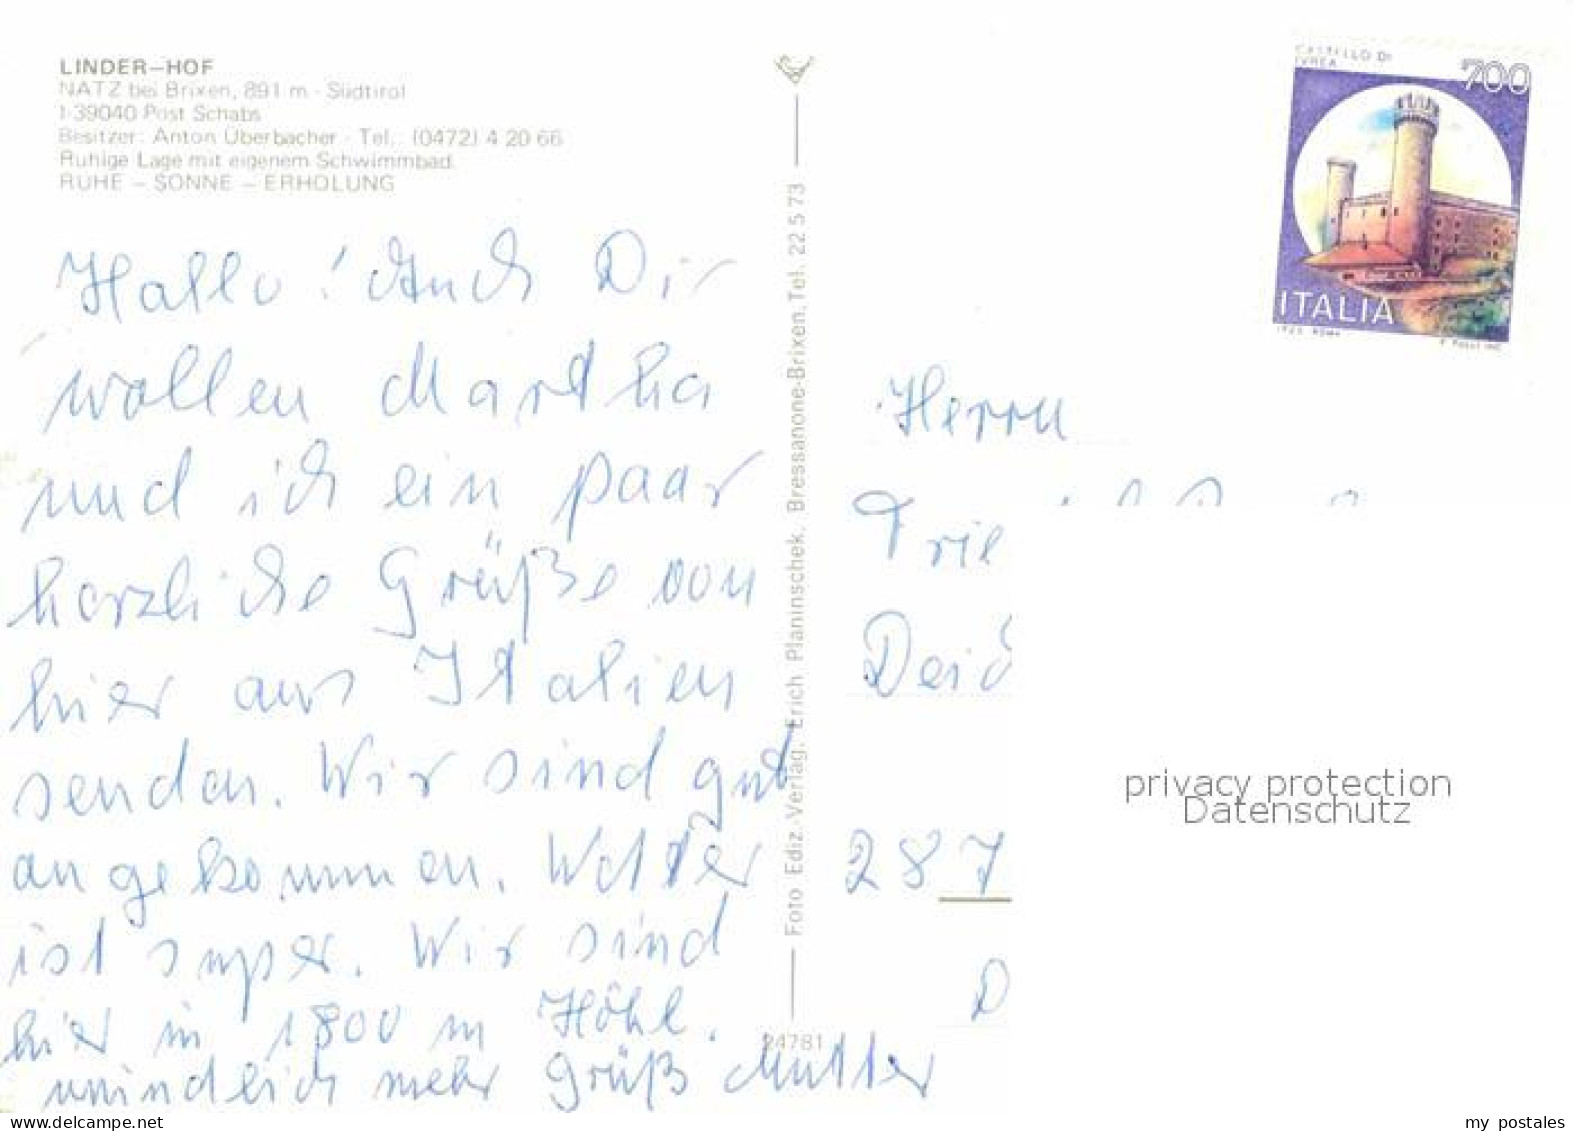 LINDER-HOF
NATZ bei Brixen, 891 m - Südtirol
I-39040 Post Schabs
Besitzer: Anton Überbacher - Tel.: (0472) 4 20 66
Ruhige Lage mit eigenem Schwimmbad.
RUHE - SONNE - ERHOLUNG
Hallo! Auch Dir
wollen Martha
und ich ein paar
herzliche Grüße von
hier aus Italien
senden. Wir sind gut
angekommen. Wetter
ist super. Wir sind
hier in 1800 m Höhe.
mündlich mehr Gruß Mutter
Foto Ediz.-Verlag. Erich Planinschek. Bressanone-Brixen. Tel. 22 5 73
24781
CASTELLO DI
IVREA
700
ITALIA
Herrn
287
D
privacy protection
Datenschutz
www.delcampe.net
my_postales